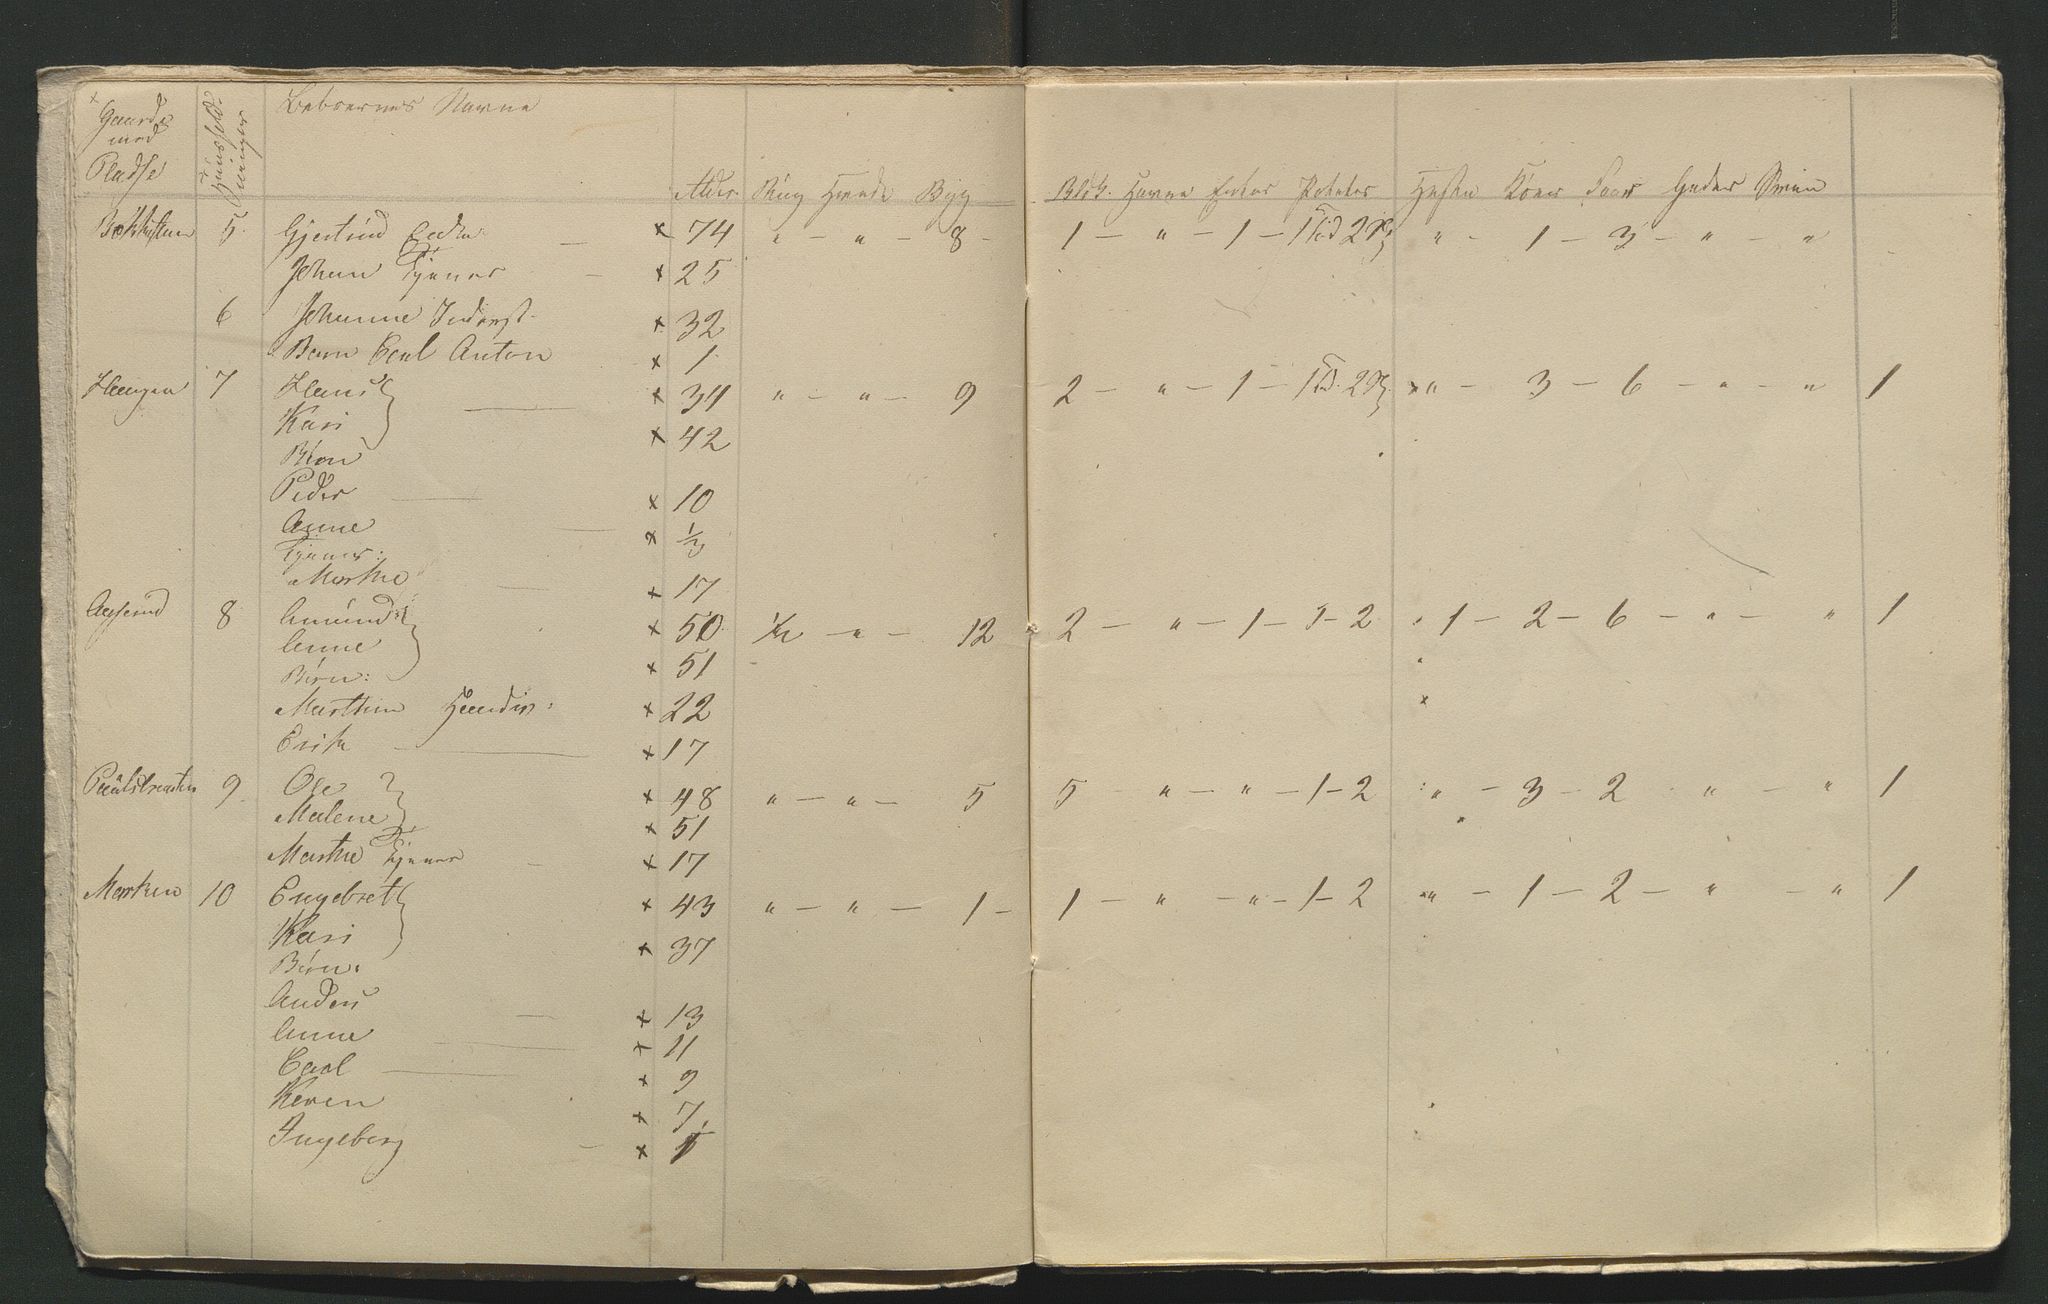 Gaarde Huusholdninger Beboernes Navne
med
Pladse
Alder. Rug Hvede Byg Bl.k. Havre Erter Poteter Heste Kiør Faar Geder Sviin
5 Gjertrud Enke x 74 " – " – 8 – 1 – " – 1 – 1 Td 2 " – 1 – 3 – " – "
Johan Tjener – x 25
6 Johanne Inderst x 32
Barn Carl Anton x 1
Haugen 7 Hans x 34 " – " – 9 2 – " – 1 – 1 Td. 2 " – 3 – 6 – " – " 1
Kari x 42
Børn
Peder x 10
Anne x 1/3
Tjener:
Marthe x 17
8 Amund x 50 – " – 12 2 – " – 1 – 1 – 2 1 – 2 – 6 – " – " 1
Anne x 51
Børn:
Marthin x 22
Erik x 17
9 Ole x 48 " – " – 5 5 – " – " – 1 – 2 " – 3 – 2 " – " 1
Malene x 51
Marthe Tjener – x 17
Marken 10 Engebret x 43 " – " – 1 – 1 – " – " – 1 – 2 " – 1 – 2 – " – " 1
Kari x 37
Børn:
Anders x 13
Anne x 11
Carl x 9
Karen x 7
Ingeborg – x